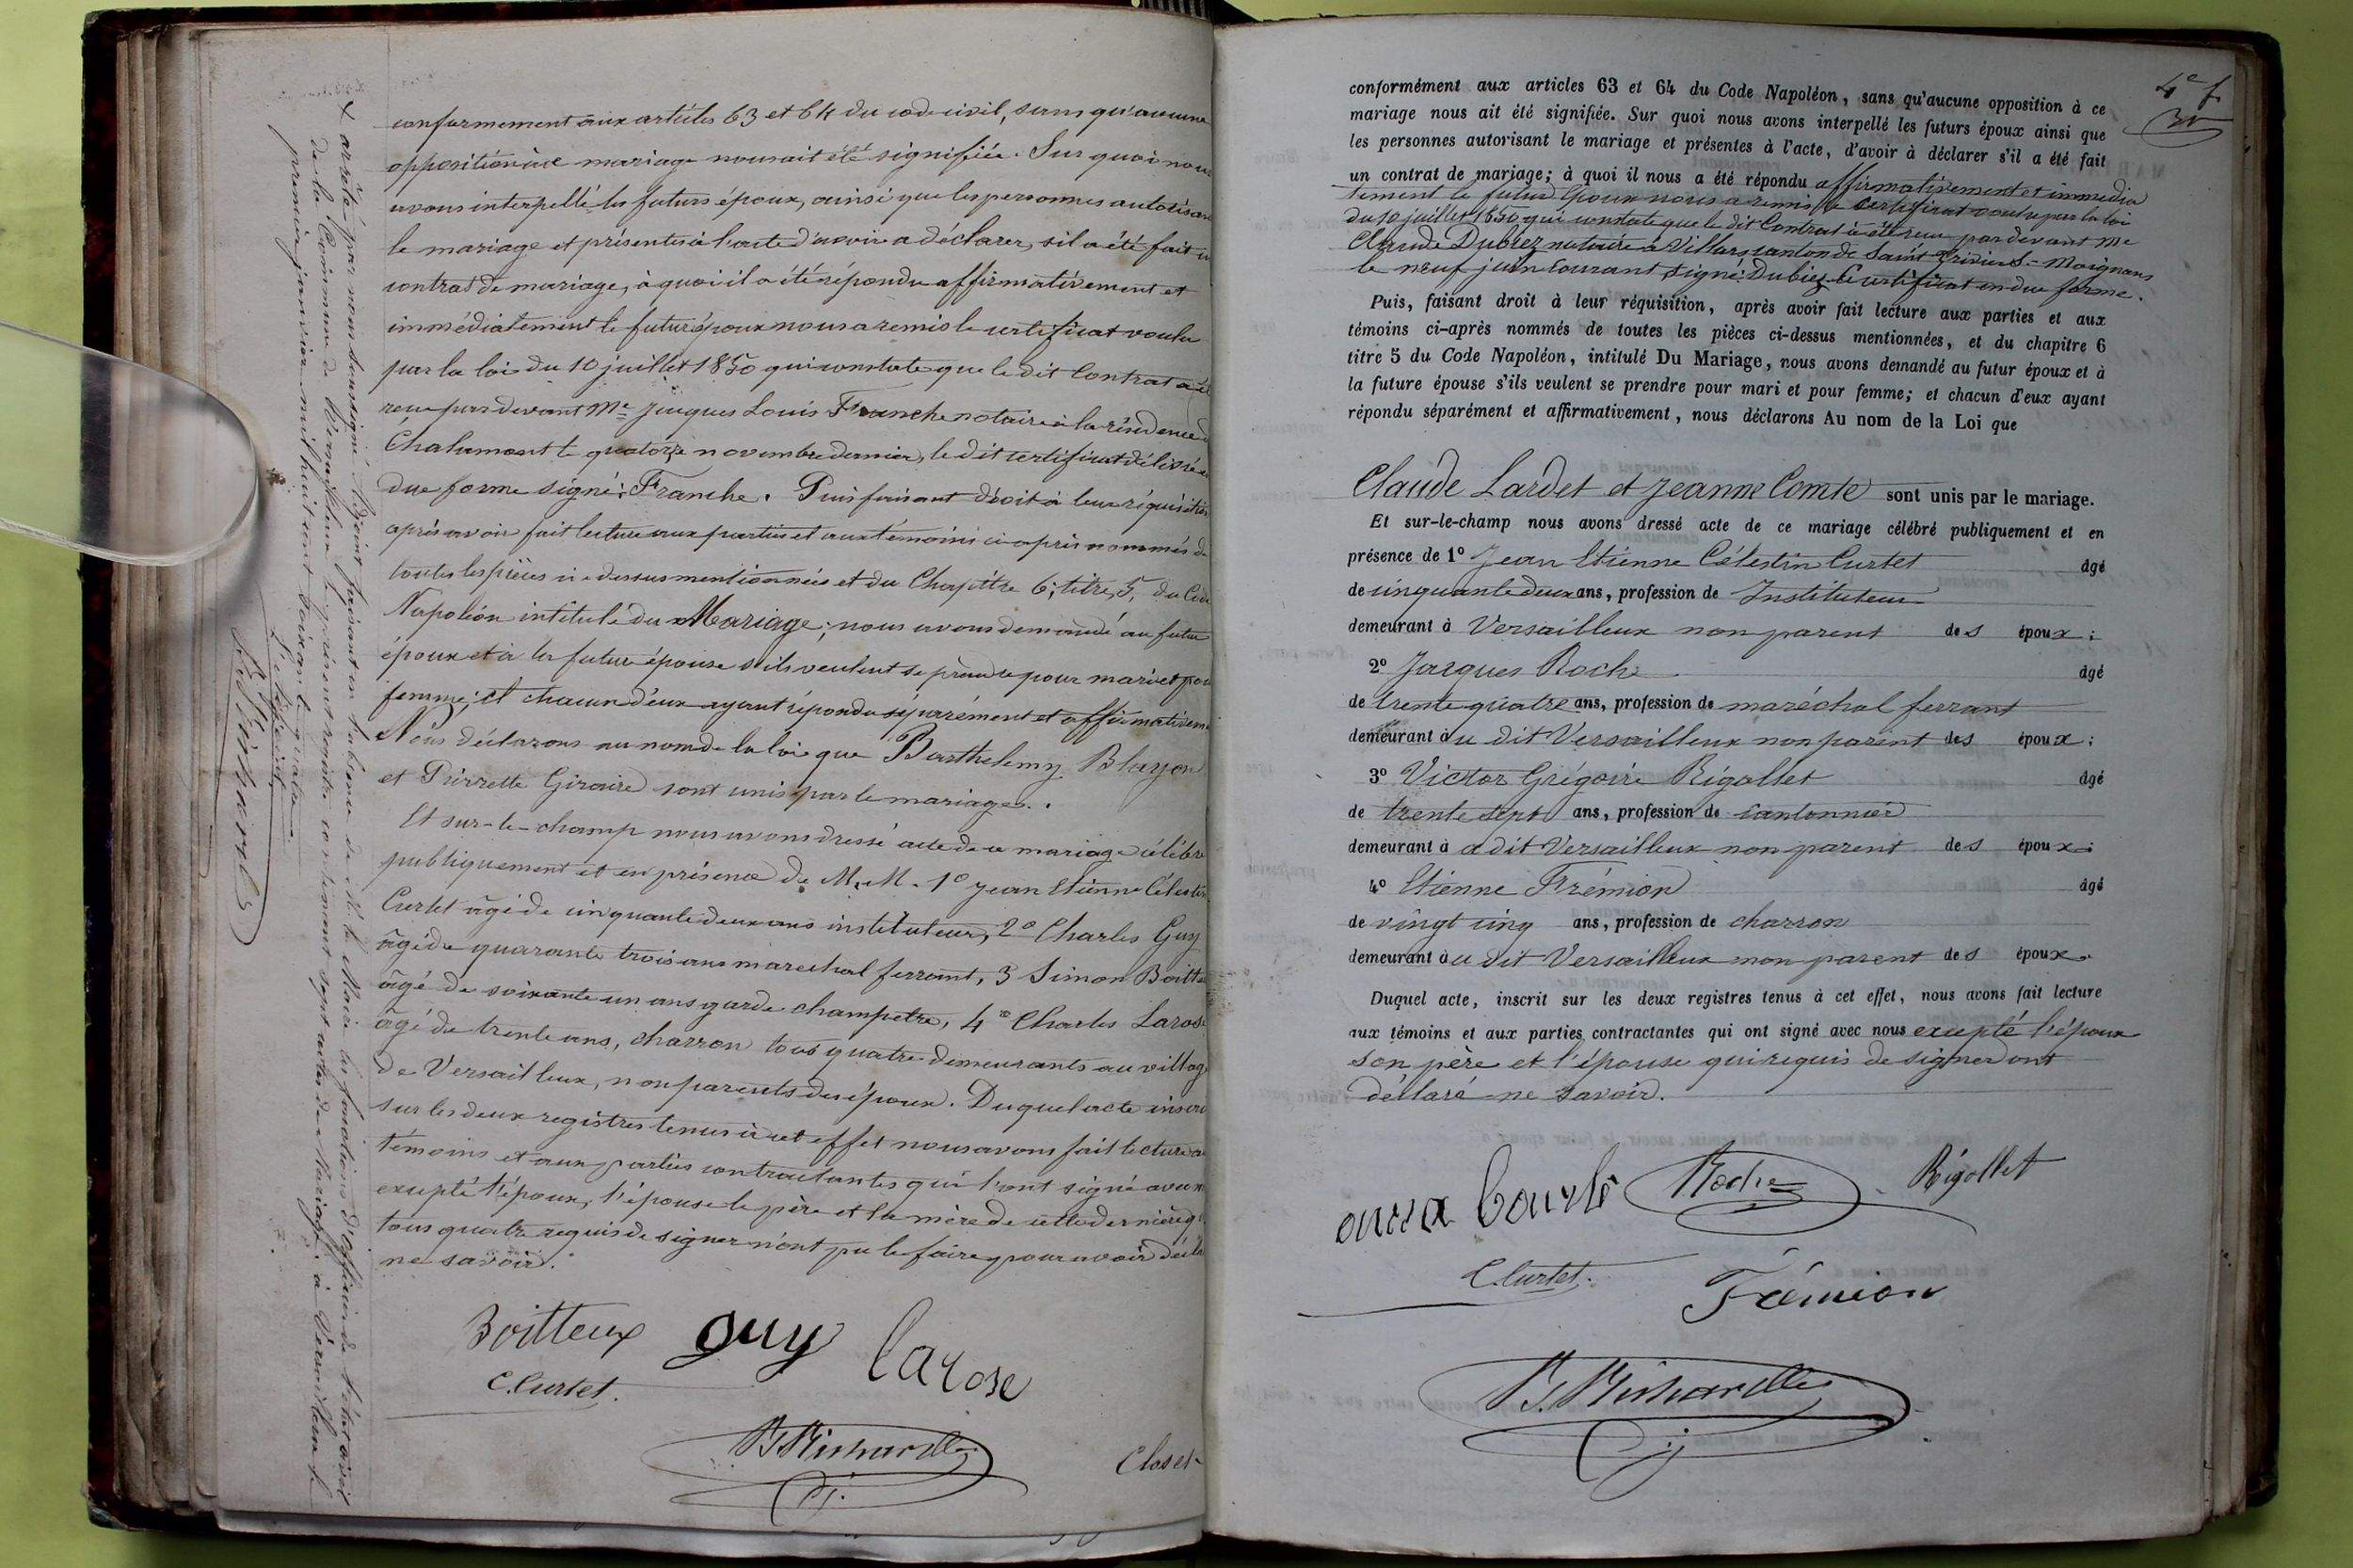 conformement aux articles 63 et 64 du code civil, sans qu'aucune
opposition à ce mariage nous ait été signifiée. Sur quoi nous
avons interpellé les futurs époux, ainsi que les personnes autorisant
le mariage et présentes à l'acte d'avoir a déclarer s'il a été fait un
contrat de mariage, à quoi il a été répondu affirmativement et
immédiatement le futur époux nous a remis le certificat voulu
par la loi du 10 juillet 1850 qui constate que le dit Contrat a été
reçu par devant Me Jacques Louis Franche notaire à la résidence de
Chalamont le quatorze novembre dernier, le dit certificat délivré en
due forme signé: Franche. Puis faisant droit à leur réquisition
après avoir fait lecture aux parties et aux témoins ci-après nommés de
toutes les pièces ci-dessus mentionnées et du Chapitre 6, titre 5, du Code
Napoléon intitulé du Mariage; nous avons demandé au futur
époux et à la future épouse s'ils veulent se prendre pour mari et pour
femme; et chacun d'eux ayant répondu séparément et affirmativem
Nous déclarons au nom de la loi que Barthelemy Blayon
et Pierrette Giraire sont unis par le mariage.
Et sur-le-champ nous avons dressé acte de ce mariage célébré
publiquement et en présence de M.M. 1° Jean Etienne Célestin
Curtet âgé de cinquante deux ans instituteur, 2° Charles Guy
âgé de quarante trois ans marechal ferrant, 3 Simon Boitteux
âgé de soixante un ans garde champetre, 4° Charles Larose
âgé de trente ans, charron tous quatre demeurants au village
de Versailleux, non parents des époux. Duquel acte inscrit
sur les deux registres tenus à cet effet nous avons fait lecture aux
témoins et aux parties contractantes qui l'ont signé avec nous
excepté l'époux, l'épouse le père et la mère de cette dernière qui
tous quatre requis de signer n'ont pu le faire pour avoir déclaré
ne savoir.
Boitteux Guy Larose
C. Curtet.
Clos et
+ arrêté par nous soussigné Adjoint faisant en l'absence de M. le Maire les fonctions d'officier de l'état civil
de la Commune de Versailleux le présent registre contenant sept actes de Mariage, à Versailleux le
premier janvier mil huit cent soixante quatre.
L'adjoint
4e f.
conformément aux articles 63 et 64 du Code Napoléon, sans qu'aucune opposition à ce
mariage nous ait été signifiée. Sur quoi nous avons interpellé les futurs époux ainsi que
les personnes autorisant le mariage et présentes à l'acte, d'avoir à déclarer s'il a été fait
un contrat de mariage; à quoi il nous a été répondu affirmativement et immédia
tement le futur époux nous a remis le certificat voulu par la loi
du 10 juillet 1850 qui constate que le dit Contrat a été reçu par devant Me
Claude Dubiez notaire à Villars canton de Saint Trivier S-Moignans
le neuf juin courant signé: Dubiez Le certificat en due forme.
Puis, faisant droit à leur réquisition, après avoir fait lecture aux parties et aux
témoins ci-après nommés de toutes les pièces ci-dessus mentionnées, et du chapitre 6
titre 5 du Code Napoléon, intitulé Du Mariage, nous avons demandé au futur époux et à
la future épouse s'ils veulent se prendre pour mari et pour femme; et chacun d'eux ayant
répondu séparément et affirmativement, nous déclarons Au nom de la Loi que
Claude Lardet et Jeanne Comte sont unis par le mariage.
Et sur-le-champ nous avons dressé acte de ce mariage célébré publiquement et en
présence de 1° Jean Etienne Célestin Curtet âgé
de cinquante deux ans, profession de Instituteur
demeurant à Versailleux non parent des époux;
2° Jacques Roche âgé
de trente quatre ans, profession de maréchal ferrant
demeurant au dit Versailleux non parent des époux;
3° Victor Grégoire Rigollet âgé
de trente sept ans, profession de cantonnier
demeurant à adit Versailleux non parent des époux;
4° Etienne Frémion âgé
de vingt cinq ans, profession de charron
demeurant au dit Versailleux non parent des époux.
Duquel acte, inscrit sur les deux registres tenus à cet effet, nous avons fait lecture
aux témoins et aux parties contractantes qui ont signé avec nous excepté l'époux
son père et l'épouse qui requis de signer ont
déclaré ne savoir.
Roche Rigollet
C. Curtet. Frémion